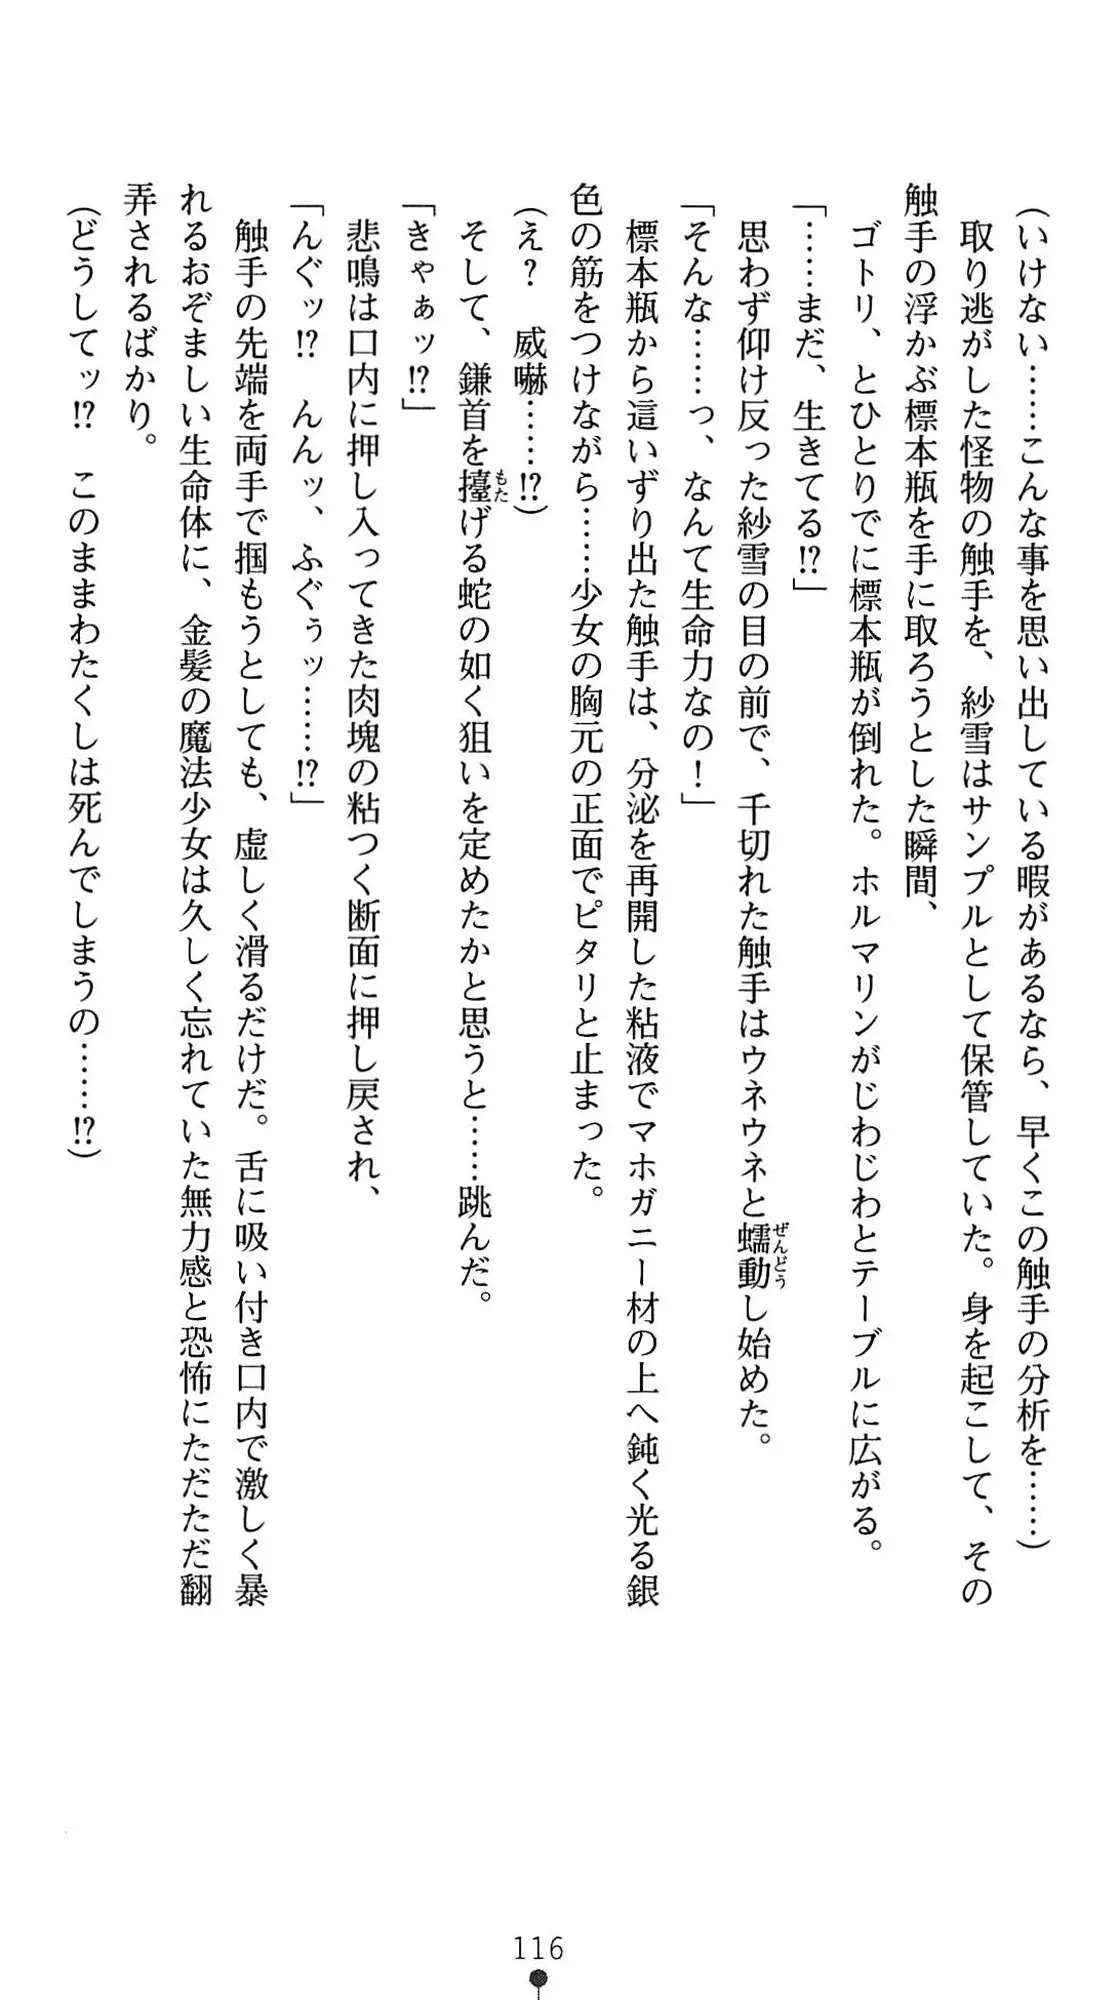 (いけない……こんな事を思い出している暇があるなら、早くこの触手の分析を……)
取り逃がした怪物の触手を、紗雪はサンプルとして保管していた。身を起こして、その
触手の浮かぶ標本瓶を手に取ろうとした瞬間、
ゴトリ、とひとりでに標本瓶が倒れた。ホルマリンがじわじわとテーブルに広がる。
「……まだ、生きてる!?」
思わず仰け反った紗雪の目の前で、千切れた触手はウネウネと蠕動し始めた。
ぜんどう
「そんな……っ、なんて生命力なの！」
標本瓶から這いずり出た触手は、分泌を再開した粘液でマホガニー材の上へ鈍く光る銀
色の筋をつけながら……少女の胸元の正面でピタリと止まった。
(え？　威嚇……!?)
そして、鎌首を擡げる蛇の如く狙いを定めたかと思うと……跳んだ。
もた
「きゃぁッ!?」
悲鳴は口内に押し入ってきた肉塊の粘つく断面に押し戻され、
「んぐッ!?　んんッ、ふぐぅッ……!?」
触手の先端を両手で掴もうとしても、虚しく滑るだけだ。舌に吸い付き口内で激しく暴
れるおぞましい生命体に、金髪の魔法少女は久しく忘れていた無力感と恐怖にただただ翻
弄されるばかり。
(どうしてッ!?　このままわたくしは死んでしまうの……!?)
116